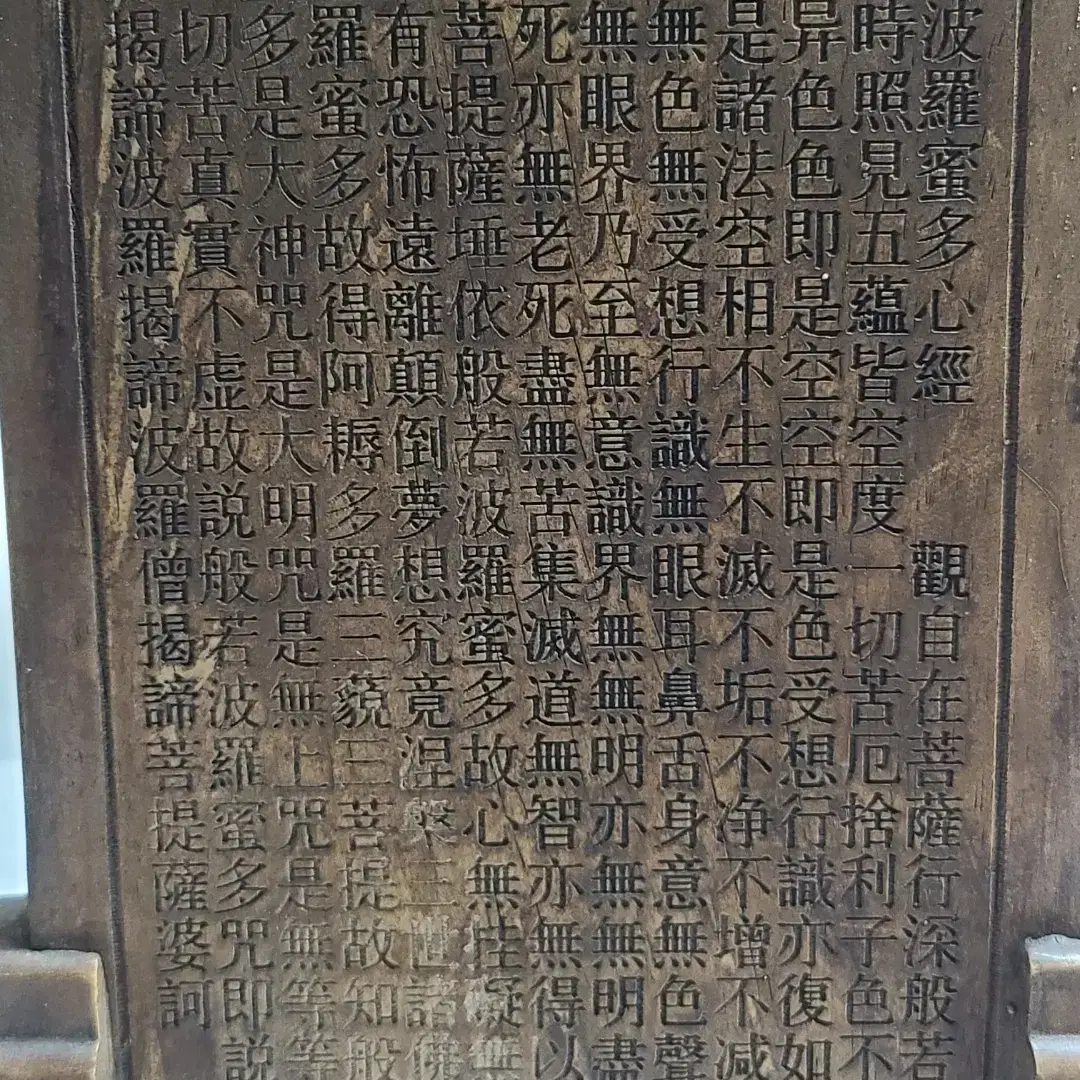 波羅蜜多心經 觀自在菩薩行深般若
時照見五蘊皆空度一切苦厄捨利子色不
異色色即是空空即是色受想行識亦復如
是諸法空相不生不滅不垢不净不增不減
無色無受想行識無眼耳鼻舌身意無色聲
無眼界乃至無意識界無無明亦無無明盡
死亦無老死盡無苦集滅道無智亦無得以
菩提薩埵依般若波羅蜜多故心無挂礙無
有恐怖遠離顛倒夢想究竟涅槃三世諸佛
羅蜜多故得阿耨多羅三藐三菩提故知般
多是大神咒是大明咒是無上咒是無等等
切苦真實不虚故説般若波羅蜜多咒即説
揭諦波羅揭諦波羅僧揭諦菩提薩婆訶